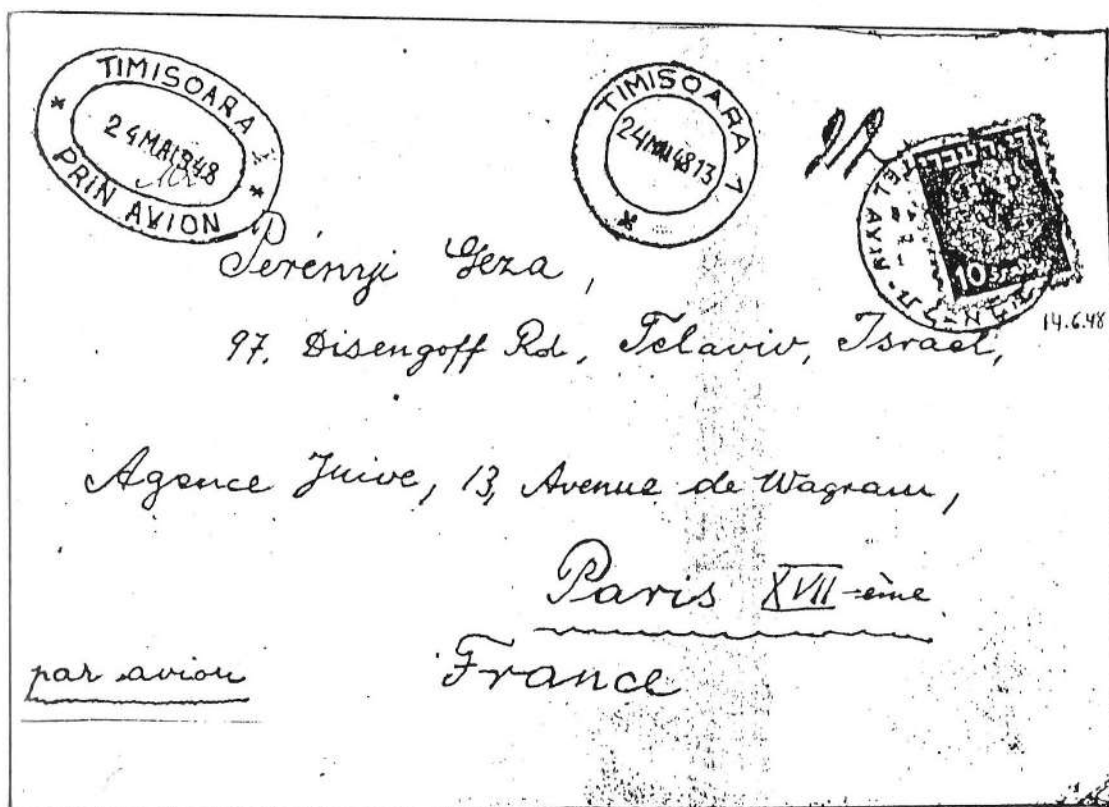 TIMISOARA 1
24MAI948
PRIN AVION
TIMISOARA 1
24MAI4813
TEL AVIV
דאר עברי
10
14.6.48
Perényi Geza,
97. Disengoff Rd, Telaviv, Israel,
Agence Juive, 13, Avenue de Wagram,
Paris XVII-ème
France
par avion